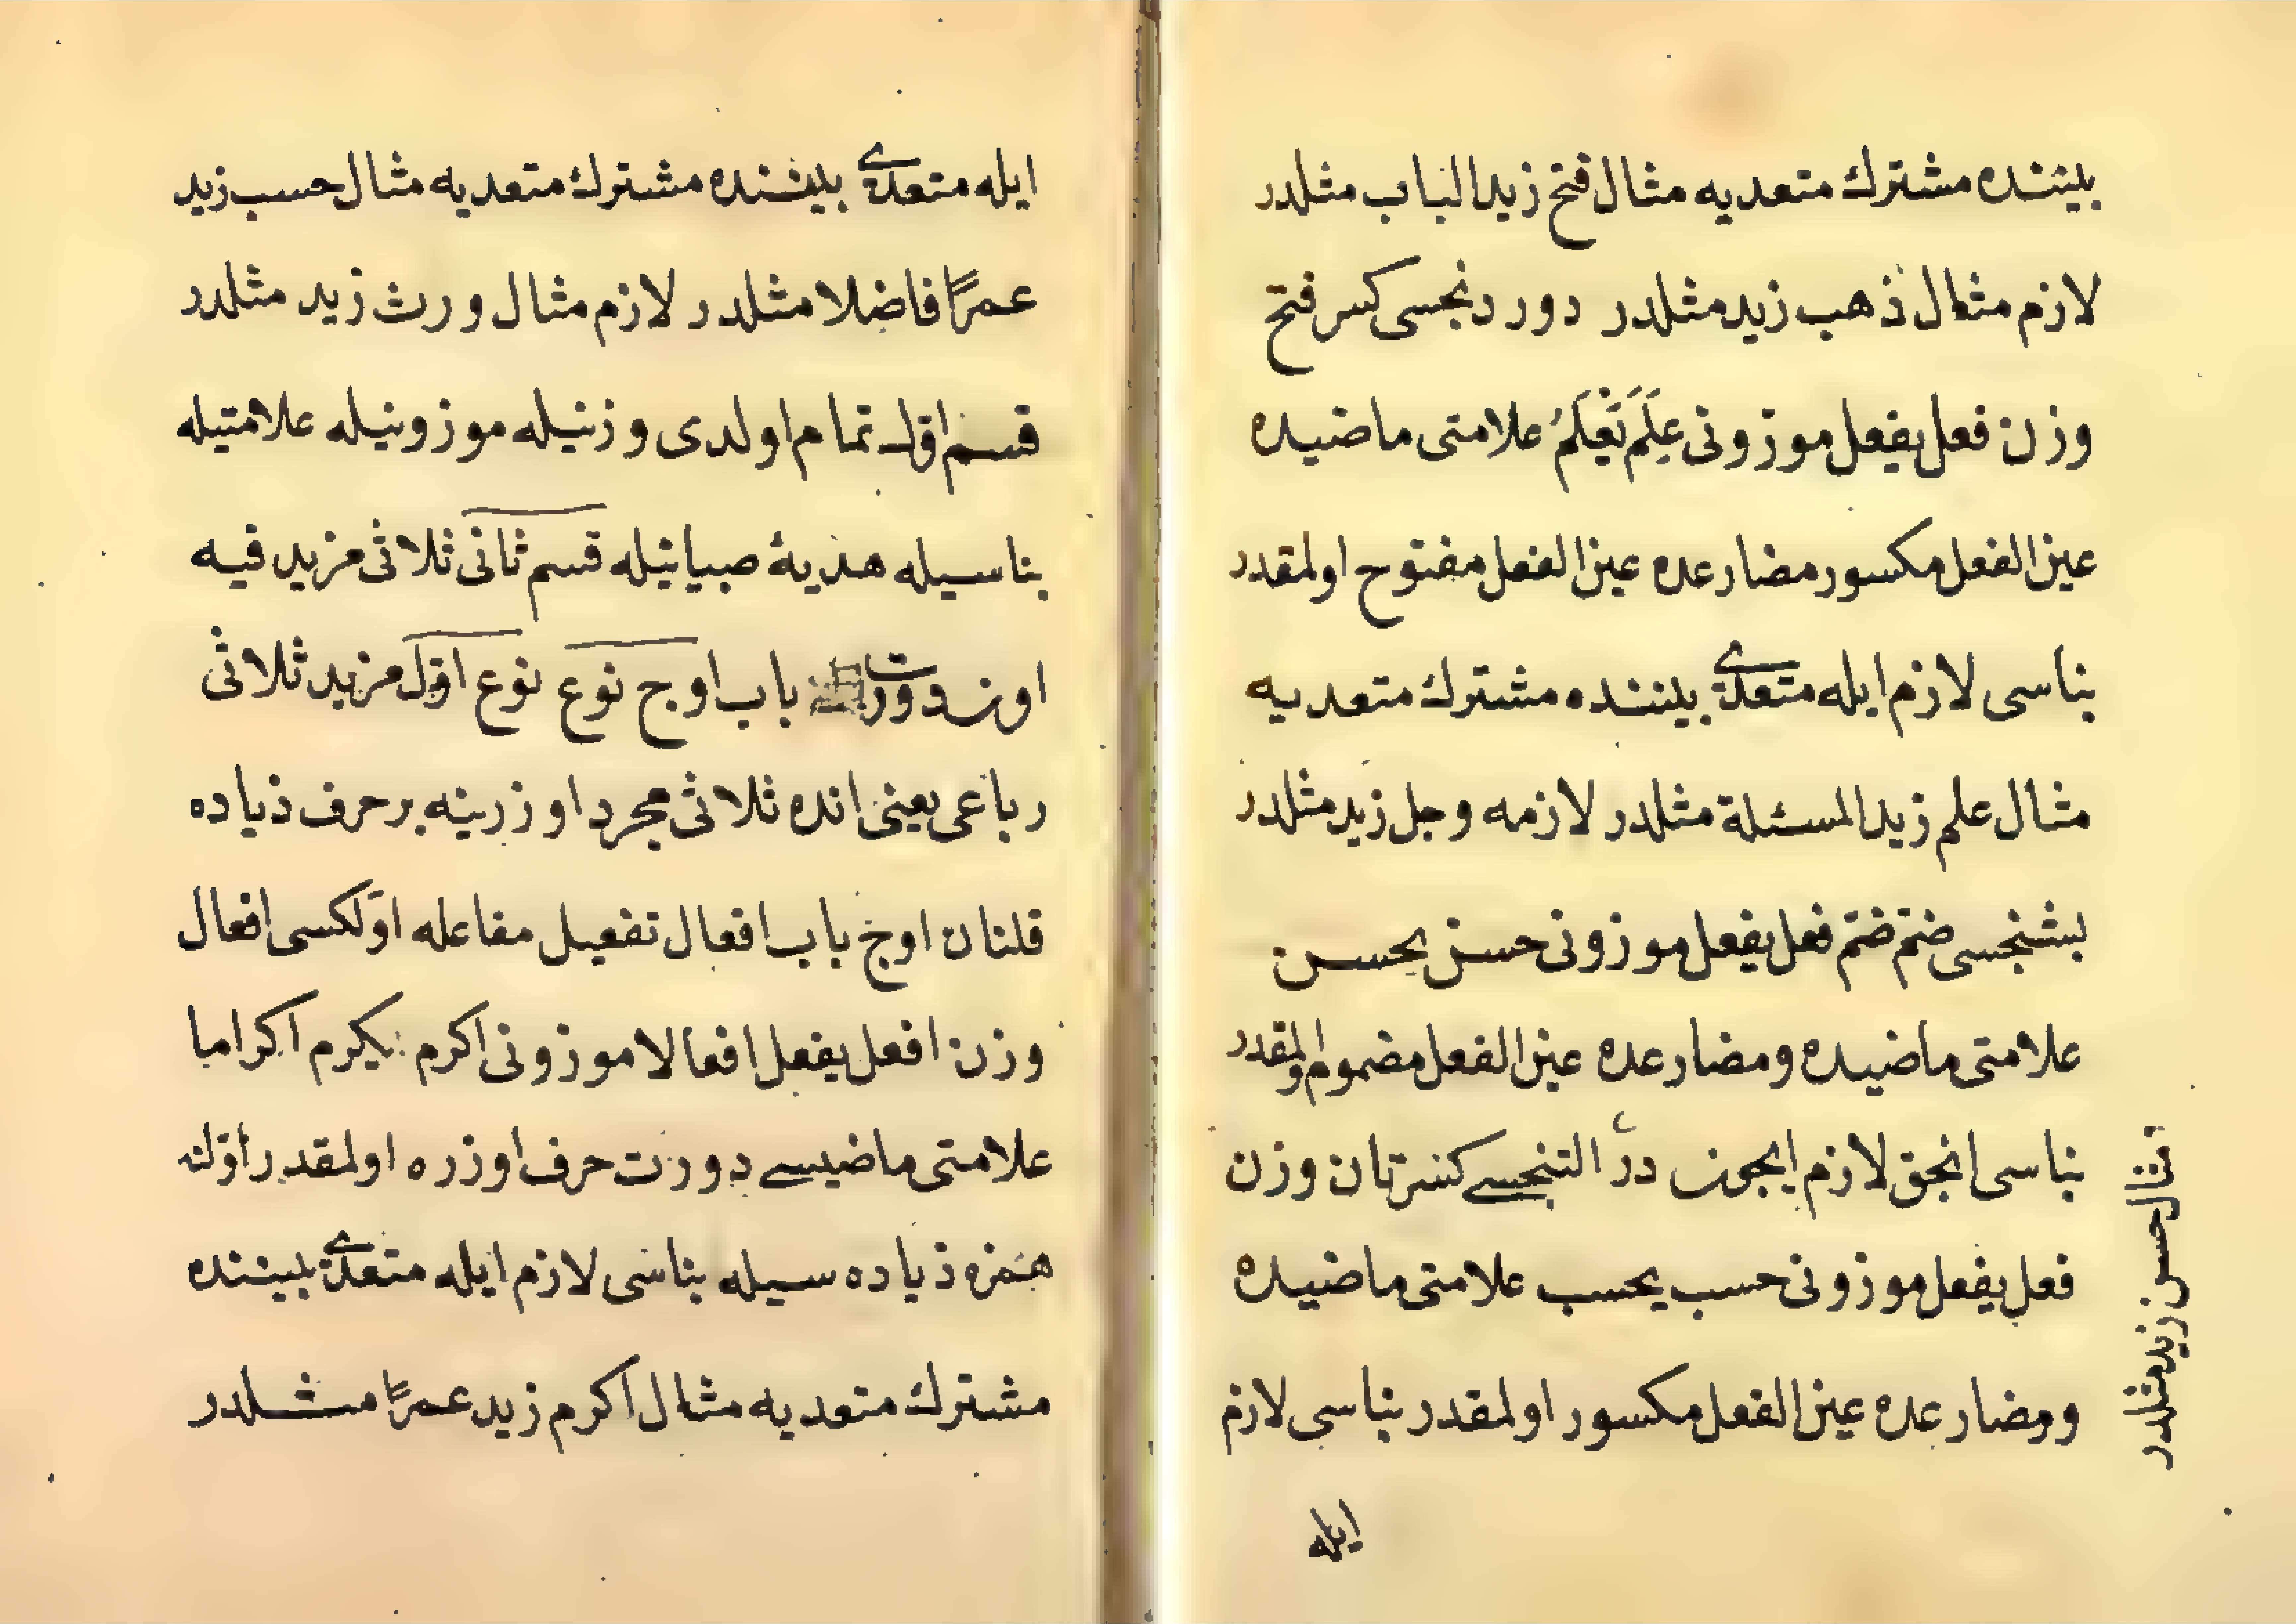 بيننده مشترك متعديه مثال فتح زيد الباب مثلدر
لازم مثال ذهب زيد مثلدر دوردنجسی كسر فتح
وزن فعل يفعل موزونی عَلِمَ يَعْلَمُ علامتی ماضيده
عين الفعل مكسور مضارعده عين الفعل مفتوح اولمقدر
بناسی لازم ايله متعدی بيننده مشترك متعديه
مثال علم زيد المسئلة مثلدر لازمه وجل زيد مثلدر
بشنجسی ضمّ ضمّ فعل يفعل موزونی حسن يحسن
علامتی ماضيده ومضارعده عين الفعل مضموم اولمقدر
بناسی انجق لازم ايچون در التنجسی كسرتان وزن
فعل يفعل موزونی حسب يحسب علامتی ماضيده
ومضارعده عين الفعل مكسور اولمقدر بناسی لازم
ايله
مثال حسن زيد مثلدر
ايله متعدی بيننده مشترك متعديه مثال حسب زيد
عمرًا فاضلا مثلدر لازم مثال ورث زيد مثلدر
قسم اوّل تمام اولدی وزنيله موزونيله علامتيله
بناسيله هديۀ صبيانيله قسم ثانی ثلاثی مزيد فيه
اون دورت باب اوچ نوع نوع اوّل مزيد ثلاثی
رباعی يعنی انده ثلاثی مجرد اوزرينه بر حرف ذياده
قلنان اوچ باب افعال تفعيل مفاعله اوّلكسی افعال
وزن افعل يفعل افعالا موزونی اكرم يكرم اكراما
علامتی ماضيسی دورت حرف اوزره اولمقدر اوّلنه
همزه ذياده سيله بناسی لازم ايله متعدی بيننده
مشترك متعديه مثال اكرم زيد عمرًا مثلدر